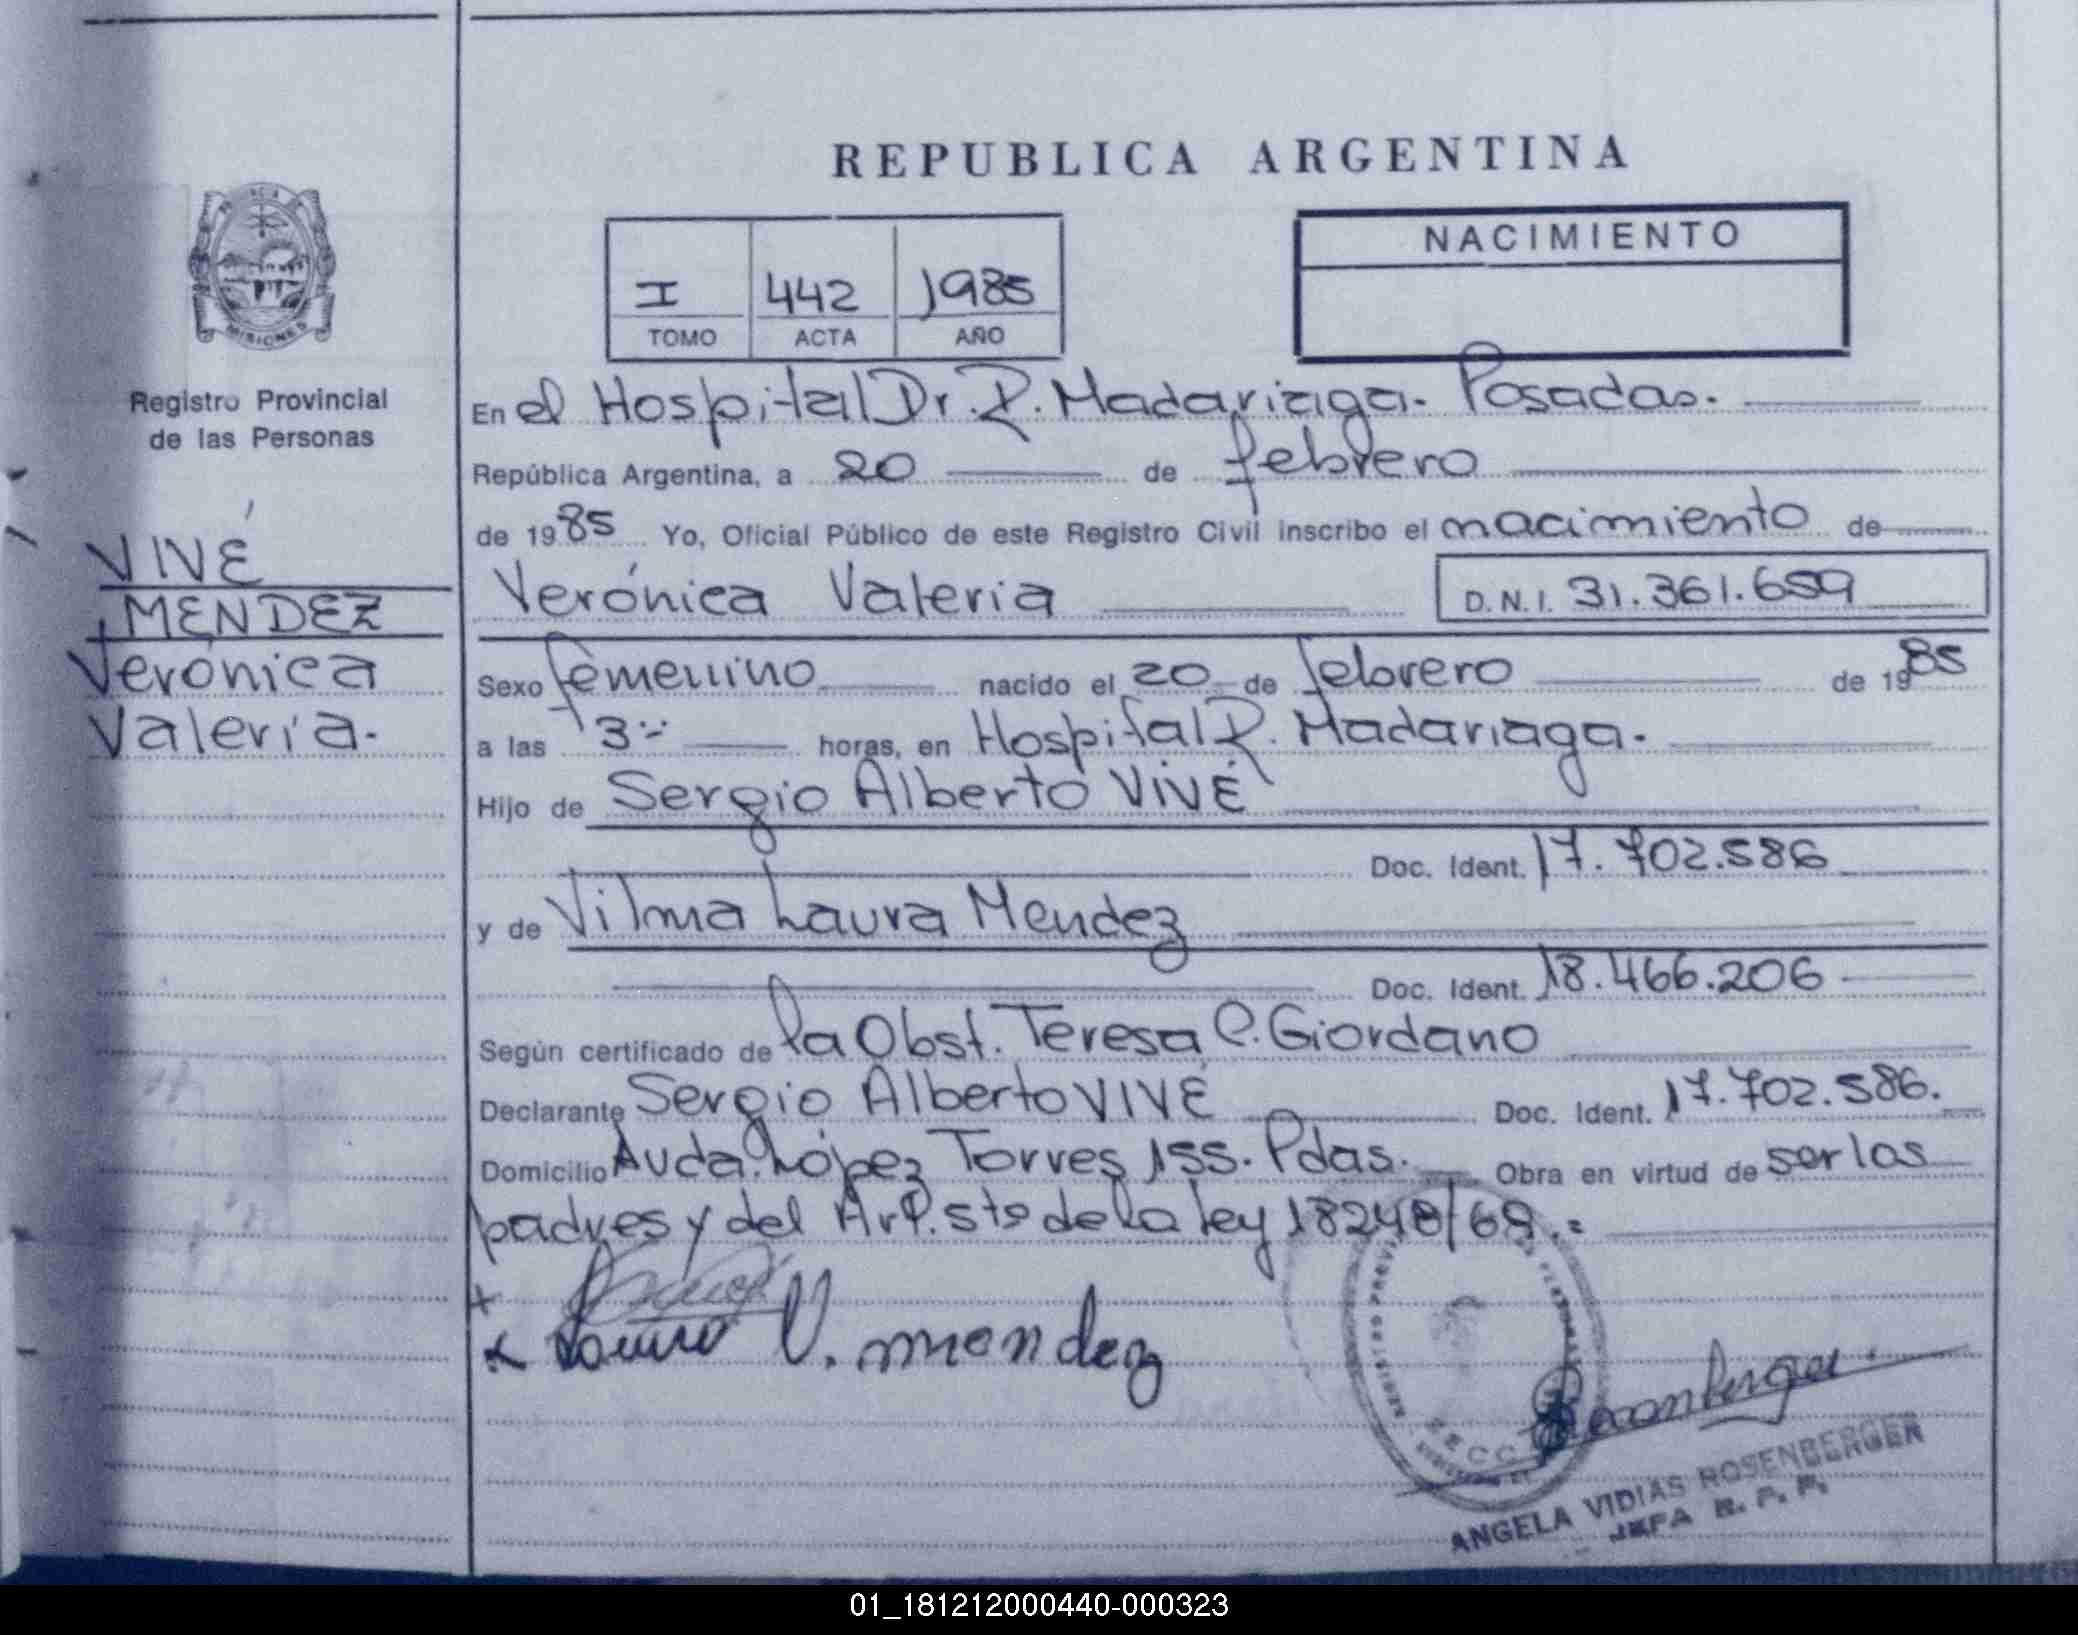 REPUBLICA ARGENTINA
MISIONES
Registro Provincial
de las Personas
VIVÉ
MENDEZ
Verónica
Valeria.
I 442 1985
TOMO ACTA AÑO
NACIMIENTO
En el Hospital Dr. R. Madariaga. Posadas.
República Argentina, a 20 de febrero
de 1985 Yo, Oficial Público de este Registro Civil inscribo el nacimiento de
Verónica Valeria D.N.I. 31.361.659
Sexo femenino nacido el 20 de febrero de 1985
a las 3 horas, en Hospital R. Madariaga.
Hijo de Sergio Alberto VIVÉ
Doc. Ident. 17.702.586
y de Vilma Laura Mendez
Doc. Ident. 18.466.206
Según certificado de la Obst. Teresa C. Giordano
Declarante Sergio Alberto VIVÉ Doc. Ident. 17.702.586.
Domicilio Avda. López Torres 155. Pdas. Obra en virtud de ser los
padres y del Art. 5to de la ley 18248/69.=
V. mendez
REGISTRO
SECC
ANGELA VIDIAS ROSENBERGER
JEFA R. P. P.
01_181212000440-000323